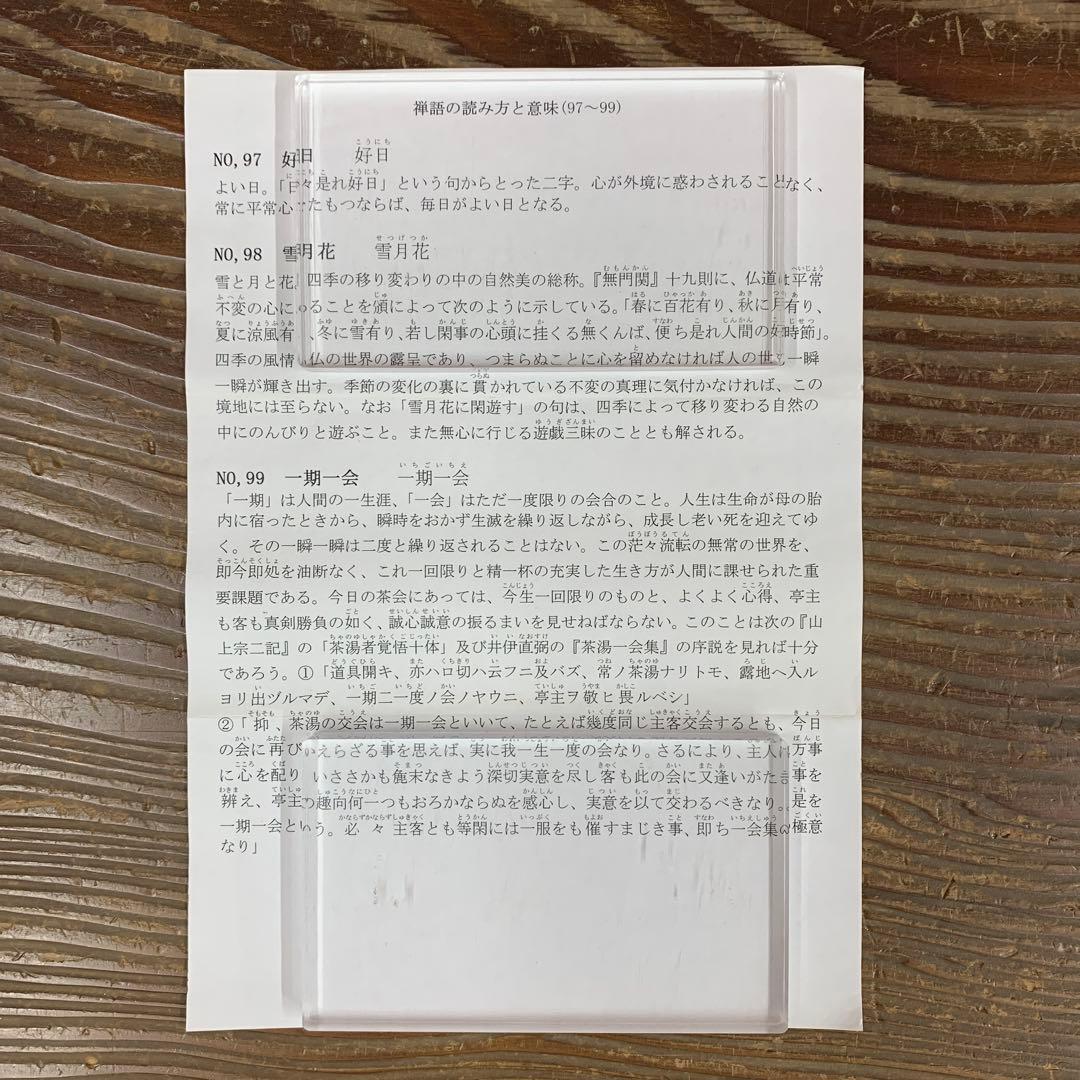 禅語の読み方と意味(97～99)
NO,97 好日 好日
よい日。「日々是れ好日」という句からとった二字。心が外境に惑わされることなく、
常に平常心をたもつならば、毎日がよい日となる。
NO,98 雪月花 雪月花
雪と月と花。四季の移り変わりの中の自然美の総称。『無門関』十九則に、仏道は平常
不変の心にあることを頌によって次のように示している。「春に百花有り、秋に月有り、
夏に涼風有り、冬に雪有り、若し閑事の心頭に挂くる無くんば、便ち是れ人間の好時節」。
四季の風情は仏の世界の露呈であり、つまらぬことに心を留めなければ人の世の一瞬
一瞬が輝き出す。季節の変化の裏に貫かれている不変の真理に気付かなければ、この
境地には至らない。なお「雪月花に閑遊す」の句は、四季によって移り変わる自然の
中にのんびりと遊ぶこと。また無心に行じる遊戯三昧のこととも解される。
NO,99 一期一会 一期一会
「一期」は人間の一生涯、「一会」はただ一度限りの会合のこと。人生は生命が母の胎
内に宿ったときから、瞬時をおかず生滅を繰り返しながら、成長し老い死を迎えてゆ
く。その一瞬一瞬は二度と繰り返されることはない。この茫々流転の無常の世界を、
即今即処を油断なく、これ一回限りと精一杯の充実した生き方が人間に課せられた重
要課題である。今日の茶会にあっては、今生一回限りのものと、よくよく心得、亭主
も客も真剣勝負の如く、誠心誠意の振るまいを見せねばならない。このことは次の『山
上宗二記』の「茶湯者覚悟十体」及び井伊直弼の『茶湯一会集』の序説を見れば十分
であろう。①「道具開キ、亦ハ口切ハ云フニ及バズ、常ノ茶湯ナリトモ、露地へ入ル
ヨリ出ヅルマデ、一期二一度ノ会ノヤウニ、亭主ヲ敬ヒ畏ルベシ」
②「抑、茶湯の交会は一期一会といいて、たとえば幾度同じ主客交会するとも、今日
の会に再びかえらざる事を思えば、実に我一生一度の会なり。さるにより、主人は万事
に心を配り、いささかも麁末なきよう深切実意を尽し客も此の会に又逢いがたき事を
辨え、亭主の趣向何一つもおろかならぬを感心し、実意を以て交わるべきなり。是を
一期一会という。必々主客とも等閑には一服をも催すまじき事、即ち一会集の極意
なり」